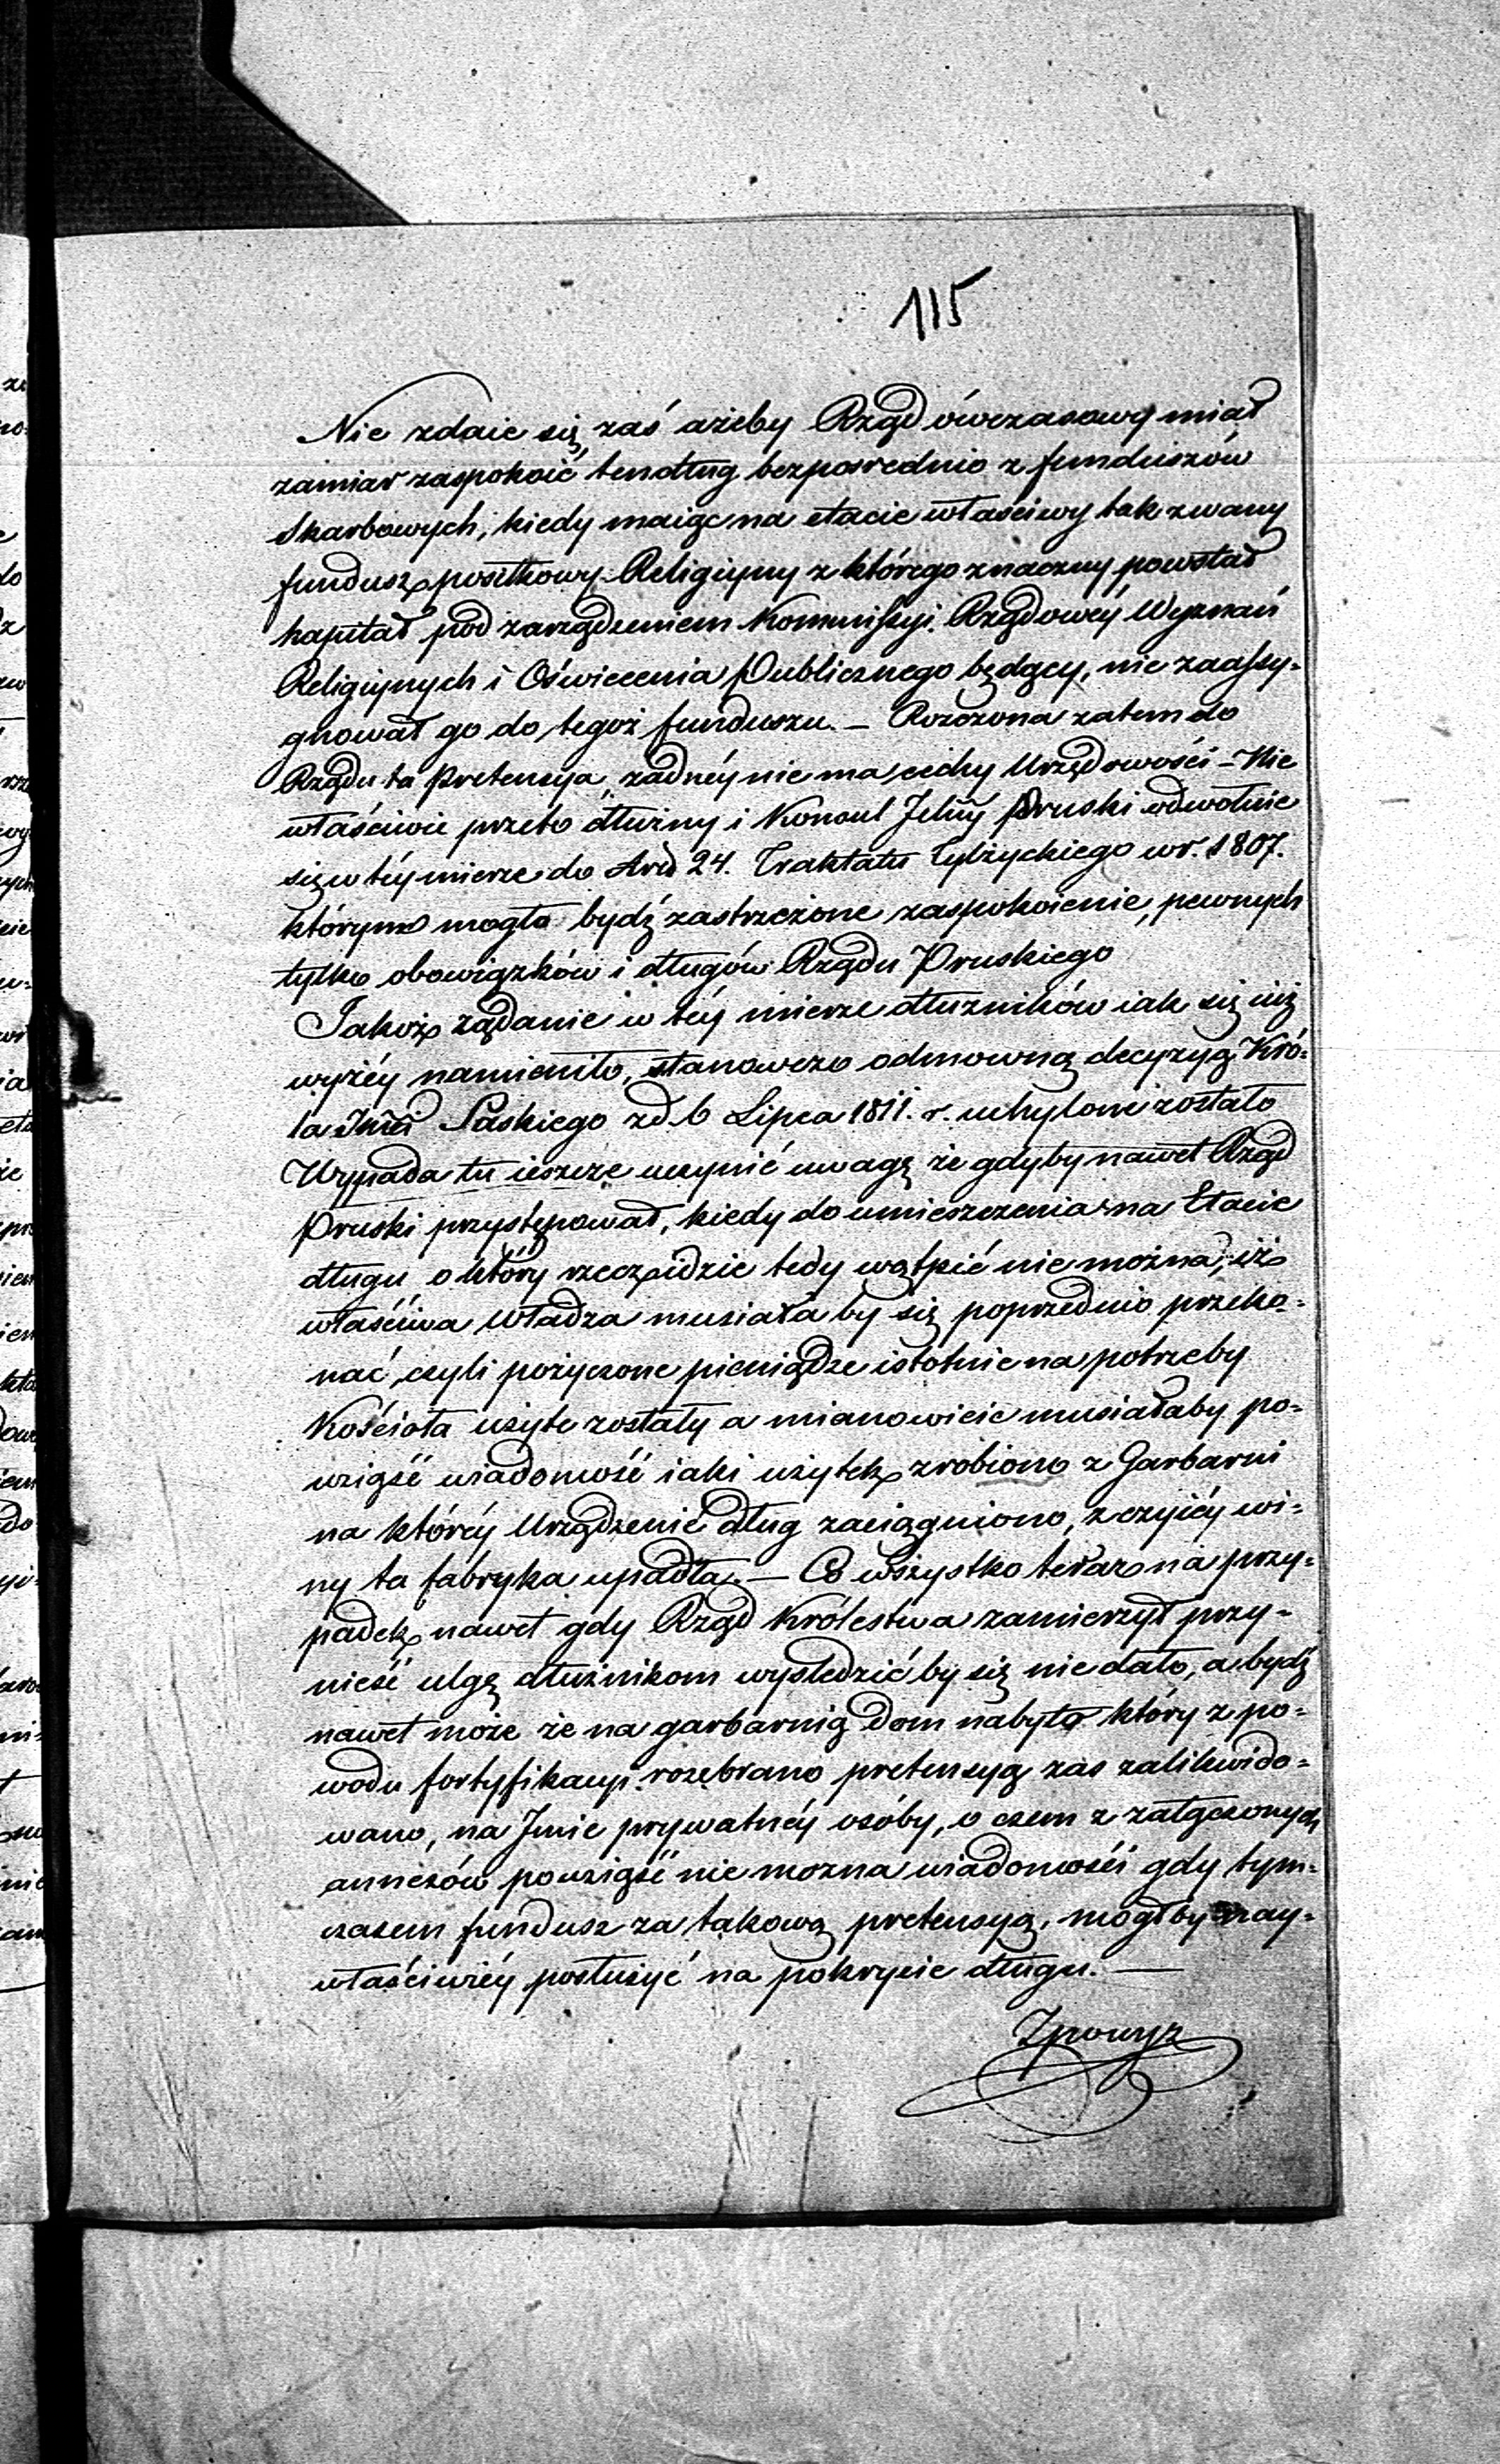 115
Nie zdaie się zaś ażeby Rząd ówczasowy miał
zamiar zaspokoić ten dług bezpośrednio z funduszów
Skarbowych, kiedy maiąc na etacie właściwy tak zwany
fundusz posiłkowy Religiyny z którego znaczny powstał
kapitał pod zarządzeniem Kommissyi Rządowey Wyznań
Religiynych i Oświecenia Publicznego będący, nie zaassy-
gnował go do tegoż funduszu. — Rozczona zatem do
Rządu ta pretensya żadnéy nie ma cechy Urzędowości — Nie
właściwie przeto dłużny i Konsul Jelny Pruski odwołuie
się w téy mierze do Art 24. Traktatu Tylżyckiego w r. 1807.
którym mogło bydź zastrzeżone zaspokoienie pewnych
tylko obowiązków i długów Rządu Pruskiego
Jakoż żądanie w téy mierze dłużników iak się iuż
wyżéy namieniło, stanowczo odmowną decyzyą Kró-
la Jmci Saskiego z d. 6 Lipca 1811. r. uchylone zostało
Wypada tu ieszcze uczynić uwagę że gdyby nawet Rząd
Pruski przystępował, kiedy do umieszczenia na Etacie
długu o który rzecz idzie tedy wątpić nie można, iż
właściwa Władza musiała by się poprzednio przeko-
nać, czyli pożyczone pieniądze istotnie na potrzeby
Kościoła użyte zostały a mianowicie musiałaby po-
wziąść wiadomość iaki użytek zrobiono z Garbarni
na któréy Urządzenie dług zaciągniono, z czyiéy wi-
ny ta fabryka upadła. — Co wszystko teraz na przy-
padek nawet gdy Rząd Królestwa zamierzył przy-
nieść ulgę dłużnikom wyśledzić by się nie dało, a bydź
nawet może że na garbarnią dom nabyto który z po-
wodu fortyfikacyi rozebrano pretensyą zas zalikwido-
wano, na Jmie prywatnéy osóby, o czem z załączonych
annexów powziąść nie mozna wiadomości gdy tym-
czasem fundusz za takową pretensyą, mógłby nay-
właściwiéy posłużyć na pokrycie długu. —